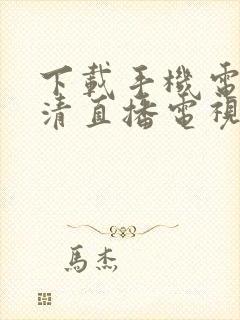 下載手機電
清直播電視
馬杰